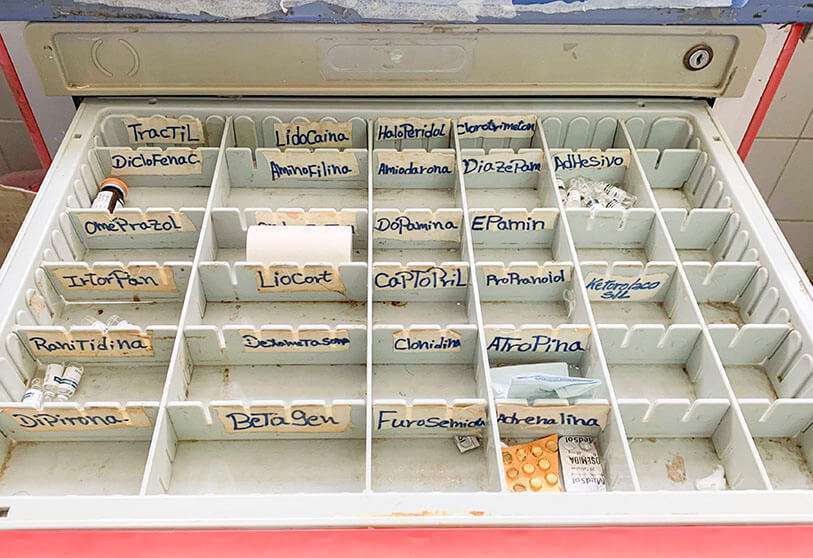 TracTiL LiDoCaina HaloPeridol Clorotrimeton
DiCloFenaC AminoFilina Amiodarona DiazePam ADhesivo
OmePrazoL DoPamina EPamin
IrtorPan LioCort CaPToPRiL ProPranolol Ketorolaco S/L
RaniTidina DexTomeTasona Clonidina ATroPina
DiPirona BeTaGen FuroSemida Adrenalina
MedSol
OSEMIDA
MedSol